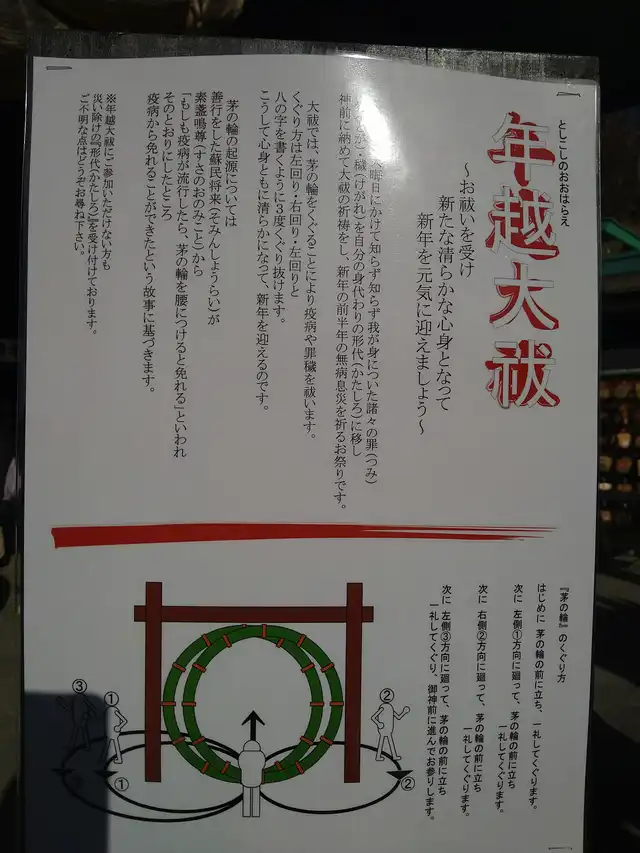 としこしのおおはらえ
年越大祓
～お祓いを受け
新たな清らかな心身となって
新年を元気に迎えましょう～
晦日にかけて知らず知らず我が身についた諸々の罪(つみ)
・穢(けがれ)を自分の身代わりの形代(かたしろ)に移し
神前に納めて大祓の祈祷をし、新年の前半年の無病息災を祈るお祭りです。
大祓では、茅の輪をくぐることにより疫病や罪穢を祓います。
くぐり方は左回り・右回り・左回りと
八の字を書くように3度くぐり抜けます。
こうして心身ともに清らかになって、新年を迎えるのです。
茅の輪の起源については
善行をした蘇民将来(そみんしょうらい)が
素盞鳴尊(すさのおのみこと)から
「もしも疫病が流行したら、茅の輪を腰につけると免れる」といわれ
そのとおりにしたところ
疫病から免れることができたという故事に基づきます。
※年越大祓にご参加いただけない方も
災い除けの『形代(かたしろ)』を受け付けております。
ご不明な点はどうぞお尋ね下さい。
『茅の輪』のくぐり方
はじめに 茅の輪の前に立ち、一礼してくぐります。
次に 左側①方向に廻って、茅の輪の前に立ち
一礼してくぐります。
次に 右側②方向に廻って、茅の輪の前に立ち
一礼してくぐります。
次に 左側③方向に廻って、茅の輪の前に立ち
一礼してくぐり、御神前に進んでお参りします。
③
①
②
①
②